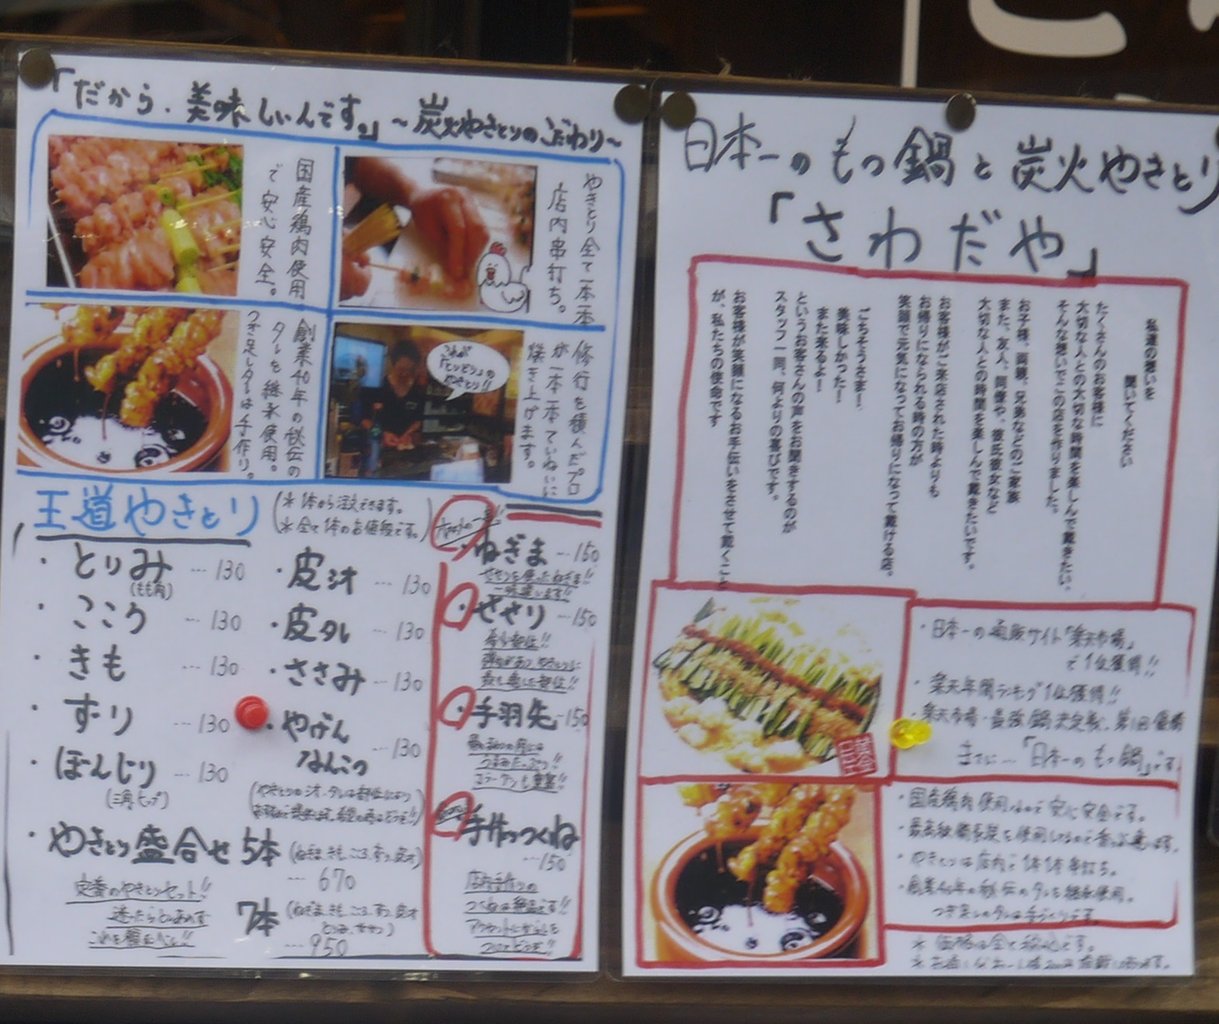 「だから、美味しいんです。」～炭火やきとりのこだわり～
国産鶏肉使用
で安心安全。
やきとり全て一本一本
店内串打ち。
創業40年の秘伝の
タレを継承使用。
つぎ足しタレは手作り。
修行を積んだプロ
が一本一本ていねいに
焼き上げます。
これが
やきとり!!
王道やきとり
(※1本から注文できます。
※全て1本のお値段です。)
・とりみ … 130
(もも肉)
・こころ … 130
・きも … 130
・ずり … 130
・ぼんじり … 130
(三角ヒップ)
・皮塩 … 130
・皮タレ … 130
・ささみ … 130
・やげん
なんこつ … 130
・やきとり盛合せ 5本
… 670
定番のやきとりセット!!
迷ったらとりあえず
7本
… 950
・ねぎま … 150
・せせり … 150
希少部位!!
・手羽先 … 150
・手作りつくね
… 150
店内手作りの
つくねは絶品です!!
日本一のもつ鍋と炭火やきとり
「さわだや」
私達の想いを
聞いてください
たくさんのお客様に
大切な人との大切な時間を楽しんで戴きたい。
そんな想いでこの店を作りました。
お子様、両親、兄弟などのご家族
また、友人、同僚や、彼氏彼女など
大切な人との時間を楽しんで戴きたいです。
お客様がご来店された時よりも
お帰りになられる時の方が
笑顔で元気になってお帰りになって戴ける店。
ごちそうさまー、
美味しかったー！
また来るよー！
というお客さんの声をお聞きするのが
スタッフ一同、何よりの喜びです。
お客様が笑顔になるお手伝いをさせて戴くこと
が、私たちの使命です
・日本一の通販サイト「楽天市場」
で1位獲得!!
・楽天年間ランキング1位獲得!!
・楽天市場・最強鍋決定戦、第1回優勝
まさに…「日本一のもつ鍋」です
・国産鶏肉使用なので安心安全です。
・最高級備長炭を使用しているので香りが違います。
・やきとりは店内で1本1本串打ち。
・創業40年の秘伝のタレを継承使用。
つぎ足しのタレは手作りです。
※価格は全て税込です。